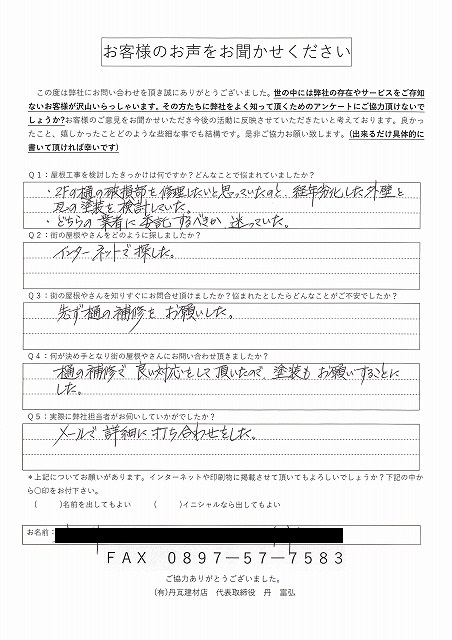 お客様のお声をお聞かせください
この度は弊社にお問い合わせを頂き誠にありがとうございました。世の中には弊社の存在やサービスをご存知
ないお客様が沢山いらっしゃいます。その方たちに弊社をよく知って頂くためのアンケートにご協力頂けないで
しょうか?お客様のご意見をお聞かせいただき今後の活動に反映させていただきたいと考えております。良かっ
たこと、嬉しかったことどのような些細な事でも結構です。是非ご協力お願い致します。(出来るだけ具体的に
書いて頂ければ幸いです)
Q1：屋根工事を検討したきっかけは何ですか？どんなことで悩まれていましたか？
・2Fの樋の破損部を修理したいと思っていたのと、経年劣化した外壁と
瓦の塗装を検討していた。
・どちらの業者に委託するべきか迷っていた。
Q2：街の屋根やさんをどのように探しましたか？
インターネットで探した。
Q3：街の屋根やさんを知りすぐにお問合せ頂けましたか？悩まれたとしたらどんなことがご不安でしたか？
先ず樋の補修をお願いした。
Q4：何が決め手となり街の屋根やさんにお問い合わせ頂きましたか？
樋の補修で良い対応をして頂いたので、塗装もお願いすることに
した。
Q5：実際に弊社担当者がお伺いしていかがでしたか？
メールで詳細に打ち合わせをした。
＊上記についてお願いがあります。インターネットや印刷物に掲載させて頂いてもよろしいでしょうか？下記の中か
ら〇印をお付下さい。
(　　)名前を出してもよい　　(　　)イニシャルなら出してもよい
お名前：
FAX 0897-57-7583
ご協力ありがとうございました。
(有)丹瓦建材店　代表取締役　丹　富弘